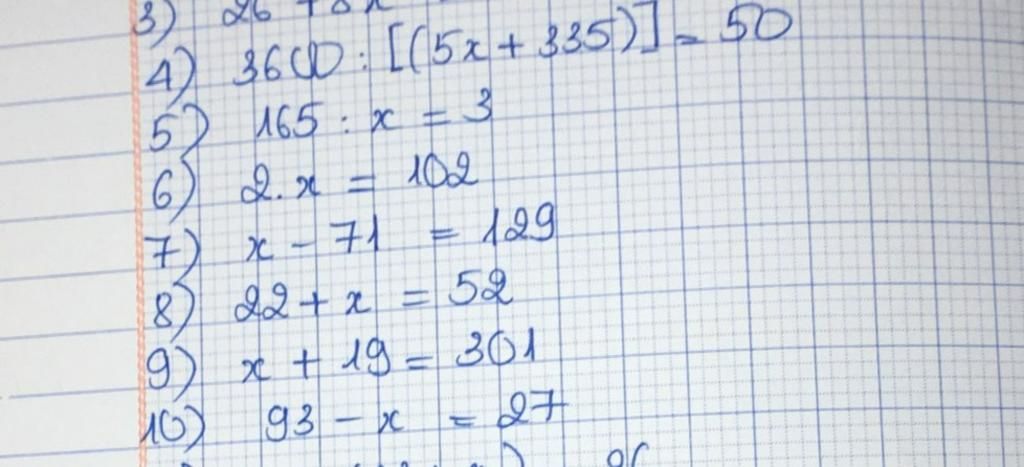 3) 26 +
4) 3600 : [(5x + 335)] = 50
5) 165 : x = 3
6) 2.x = 102
7) x - 71 = 129
8) 22 + x = 52
9) x + 19 = 301
10) 93 - x = 27